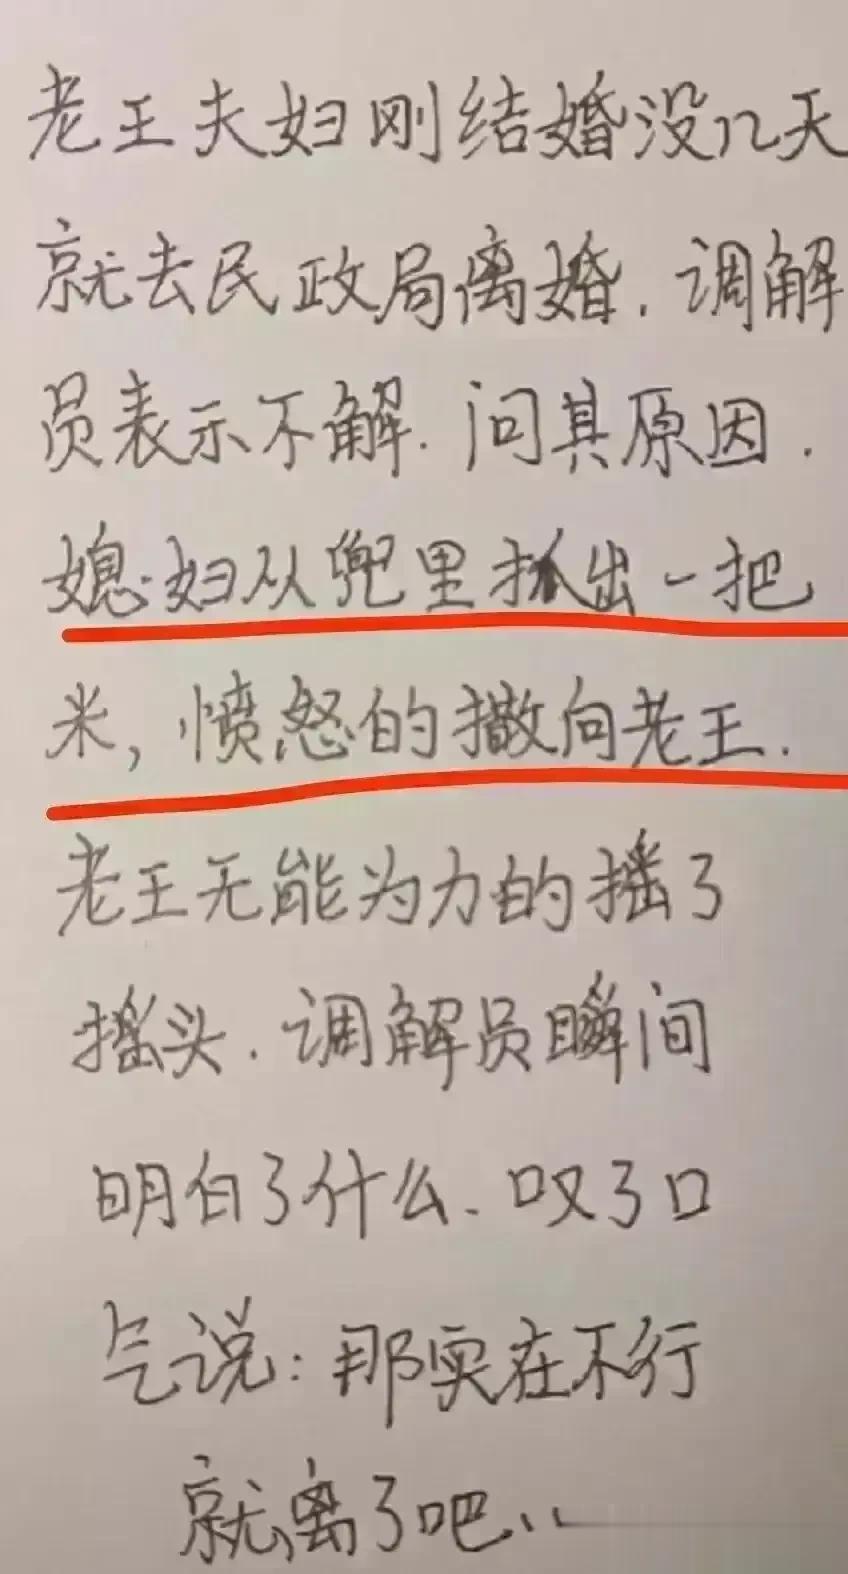 老王夫妇刚结婚没几天
就去民政局离婚.调解
员表示不解.问其原因.
媳妇从兜里抓出一把
米,愤怒的撒向老王.
老王无能为力的摇了
摇头.调解员瞬间
明白了什么.叹了口
气说:那实在不行
就离了吧..